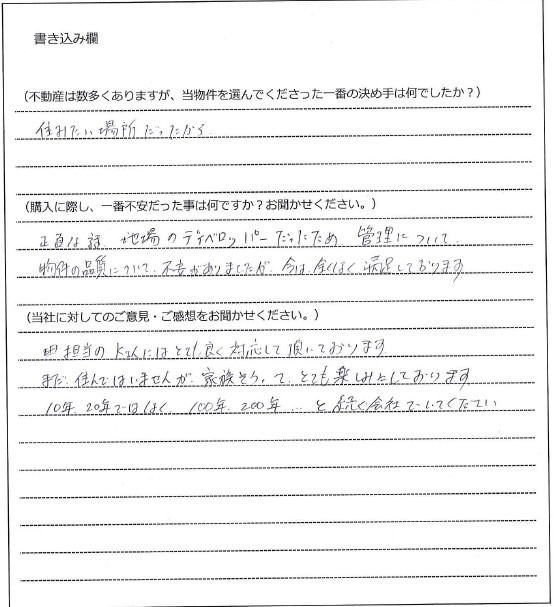 書き込み欄
(不動産は数多くありますが、当物件を選んでくださった一番の決め手は何でしたか？)
住みたい場所だったから
(購入に際し、一番不安だった事は何ですか？お聞かせください。)
正直な話、地場のディベロッパーだったため 管理について…
物件の品質について、不安がありましたが、今は、全くなく満足しております
(当社に対してのご意見・ご感想をお聞かせください。)
担当のKさんにはとても良く対応して頂いております
まだ、住んではいませんが、家族そろって、とても楽しみにしております
10年、20年ではなく、100年、200年…と続く会社でいてください